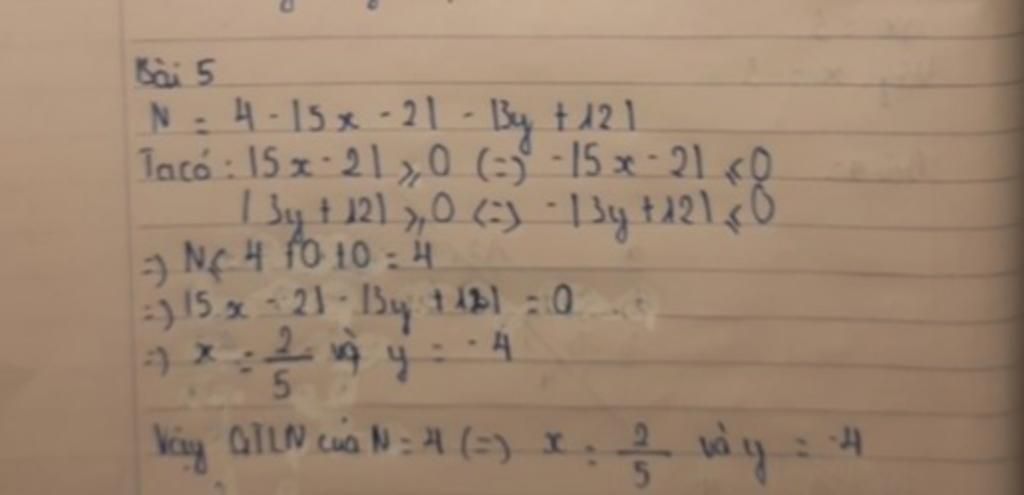 Bài 5
N = 4 - |5x - 2| - |3y + 12|
Ta có : |5x - 2| ⩾ 0 (=) -|5x - 2| ⩽ 0
|3y + 12| ⩾ 0 (=) -|3y + 12| ⩽ 0
=) N ⩽ 4 + 0 + 0 = 4
=) |5x - 2| - |3y + 12| = 0
=) x = 2/5 và y = -4
Vậy GTLN của N = 4 (=) x = 2/5 và y = -4